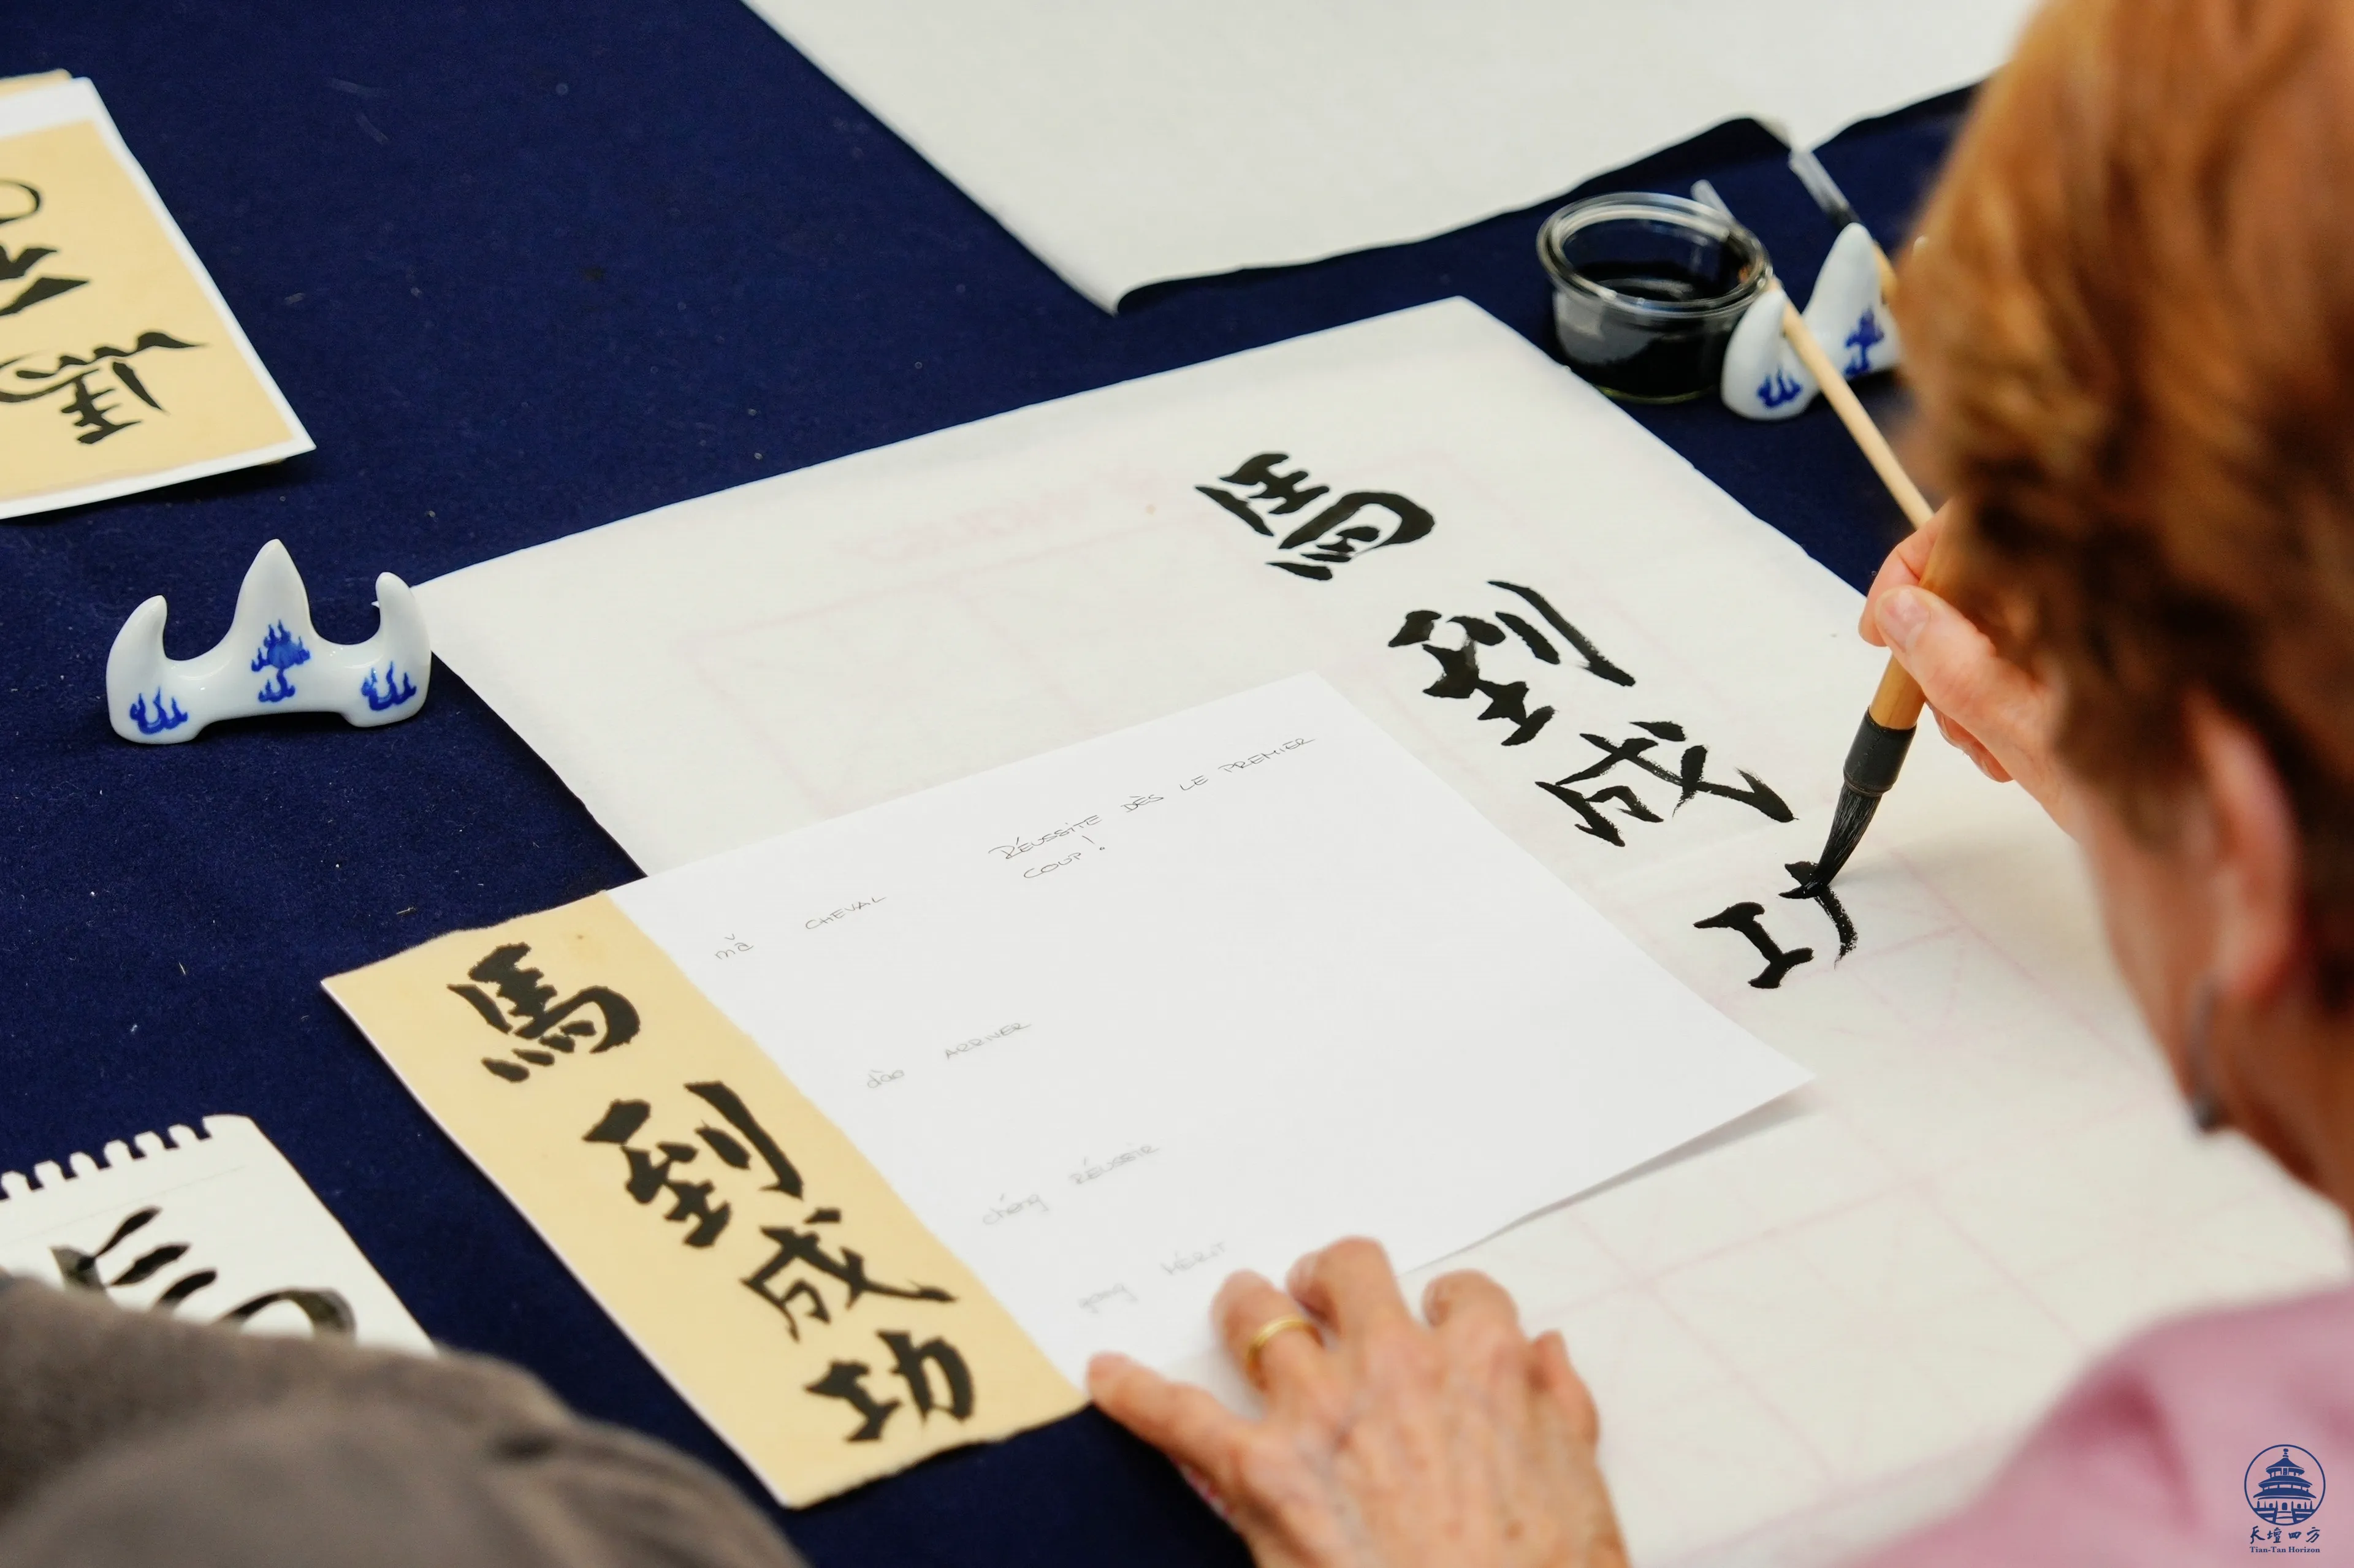 馬到成功
馬到成
RÉUSSITE DÈS LE PREMIER
COUP!
mǎ CHEVAL
dào ARRIVER
chéng RÉUSSIR
gong MÉRIT
馬
天壇四方
Tian-Tan Horizon